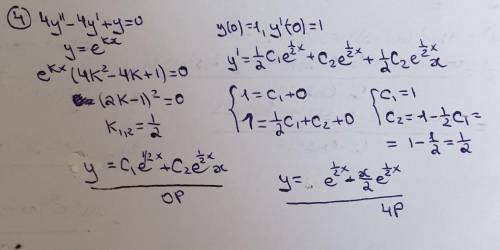 ④ 4y''-4y'+y=0
y=e^{kx}
e^{kx}(4k²-4k+1)=0
(2k-1)²=0
k_{1,2}=1/2
y=C₁e^{1/2x}+C₂e^{1/2x}x
ОР
y(0)=1, y'(0)=1
y'=1/2C₁e^{1/2x}+C₂e^{1/2x}+1/2C₂e^{1/2x}x
{1=C₁+0
1=1/2C₁+C₂+0
{C₁=1
C₂=1-1/2C₁=
=1-1/2=1/2
y=e^{1/2x}+x/2e^{1/2x}
ЧР